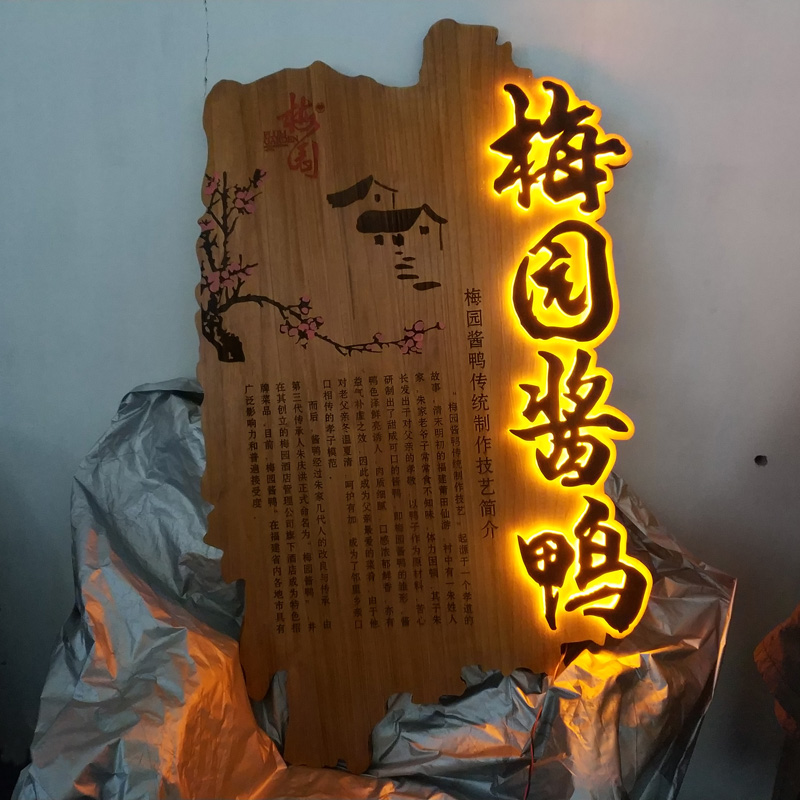 梅园酱鸭
梅园
梅园酱鸭传统制作技艺简介
“梅园酱鸭传统制作技艺”起源于一个孝道的
故事。清末明初的福建莆田仙游,村中有一朱姓人
家,朱家老爷子常常食不知味,体力困顿,其子朱
长发出于对父亲的孝敬,以鸭子作为原材料,苦心
研制出了甜咸可口的酱鸭,即梅园酱鸭的雏形。酱
鸭色泽鲜亮诱人,肉质细腻,口感浓郁鲜香,亦有
益气补虚之效,因此成为父亲最爱的菜肴。由于他
对老父亲冬温夏凊,呵护有加,成为了邻里乡亲口
口相传的孝子模范。
而后,酱鸭经过朱家几代人的改良与传承,由
第三代传承人朱庆洪正式命名为“梅园酱鸭”,并
在其创立的梅园酒店管理公司旗下酒店成为特色招
牌菜品。目前,梅园酱鸭,在福建省内各地市具有
广泛影响力和普遍接受度。